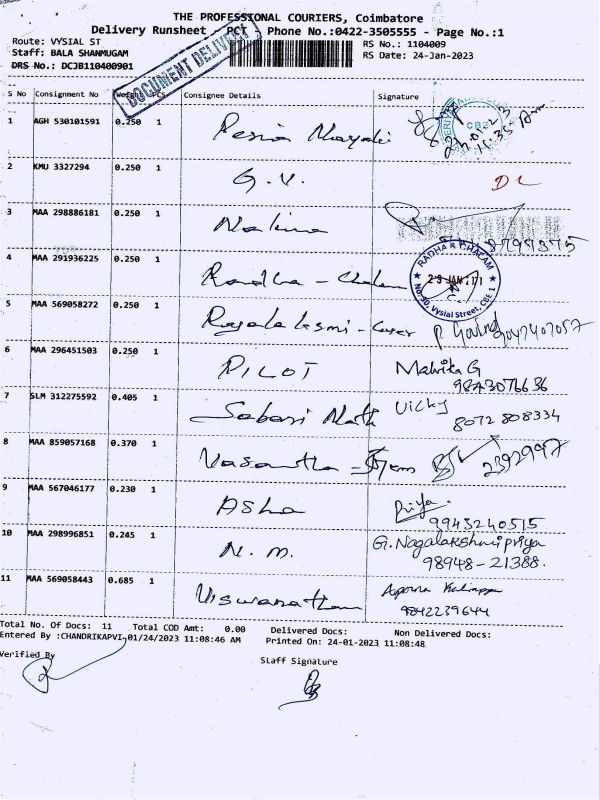 THE PROFESSIONAL COURIERS, Coimbatore
Delivery Runsheet - PCT Phone No.:0422-3505555 - Page No.:1
Route: VYSIAL ST RS No.: 1104009
Staff: BALA SHANMUGAM RS Date: 24-Jan-2023
DRS No.: DCJB110400901
DOCUMENT DELIVERY
S No Consignment No Weight PCS Consignee Details Signature
1 AGH 530101591 0.250 1
24.01.23
11.35 Am
2 KMU 3327294 0.250 1 G.V.
3 MAA 298886181 0.250 1 Nalina
4 MAA 291936225 0.250 1 Radha - Chalam
RADHA R CHALAM
No:30, Vysial Street, CBE 1
5 MAA 569058272 0.250 1 Rajalakshmi - 9047407057
6 MAA 296451503 0.250 1 PILOT Malvika G
9843076636
7 SLM 312275592 0.405 1 Sabari Nath Vicky
8072 808334
8 MAA 859057168 0.370 1 Vasantha - 2392997
9 MAA 567046177 0.230 1 Asha Priya
9943240515
10 MAA 298996851 0.245 1 N. M. G. Nagalakshmi priya
98948-21388.
11 MAA 569058443 0.685 1 Viswanathan
9842239644
Total No. Of Docs: 11 Total COD Amt: 0.00 Delivered Docs: Non Delivered Docs:
Entered By :CHANDRIKAPVI-01/24/2023 11:08:46 AM Printed On: 24-01-2023 11:08:48
Verified By Staff Signature